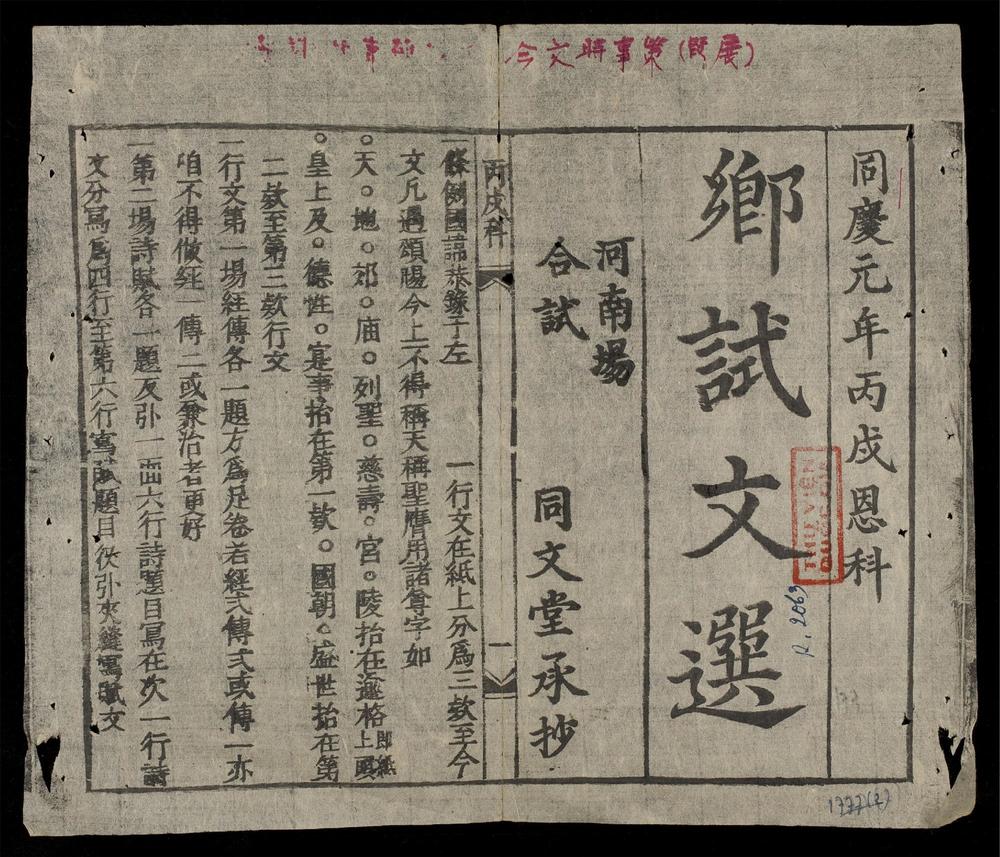 今文時事策(既展)
同慶元年丙戌恩科
鄉試文選
河南場
合試
同文堂承抄
THƯ VIỆN
R. 2063
丙戌科
一
一條例國諱恭錄于左
一行文在紙上分爲三欵至今
文凡遇頌揚今上不得稱天稱聖膺用諸尊字如
○天○地○郊○庙○列聖○慈壽○宮○陵抬在逾格即紙上頭
○皇上及○德性○寔事抬在第一欵○國朝○盛世抬在第
二欵至第三欵行文
一行文第一場經傳各一題方爲足卷若經弍傳弍或傳一亦
咱不得做経一傳二或兼治者更好
一第二場詩賦各一題及引一面六行詩題目寫在次一行詩
文分寫爲四行至第六行寫賦題目夾引夾縫寫賦文
1777(2)